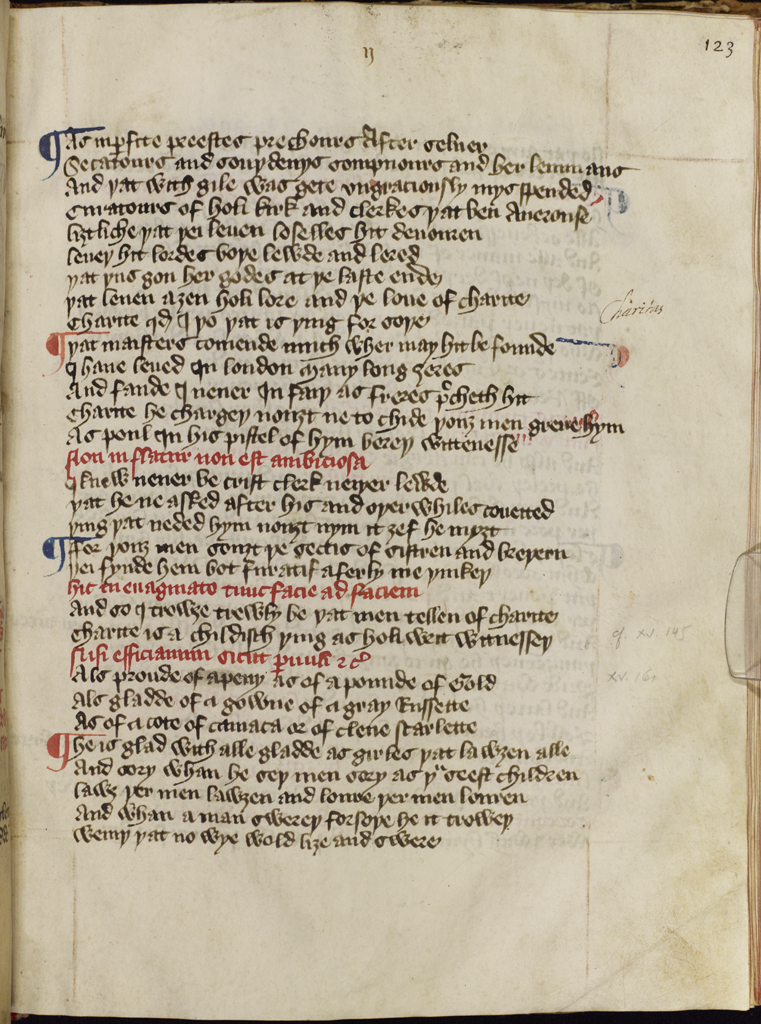 123
As inp̲fite preestes prechours After seluer
Secatours and souydenys sompnours and her lemmans
And yat with gile was gete vngraciously mys spended
Curatours of holi kirk and clerkes yat ben Auerouse
liȝtliche yat yei leuen loselles hit deuouren
leuey hit lordes boye lewde and lered
yat yus gon her godes at ye laste ende
yat leuen aȝen holi lore and ye loue of charite
Charite qd I yo yat is ying for soye
Charitas
yat maisters comende mich wher may hit be founde
I haue leued In london many long ȝeres
And fande I neuer In fay as freres p̲cheth hit
Charite he chargey nouȝt ne to chide youȝ men greue hym
As poul In his pistel of hym berey wittenesse
Non inflatur non est ambiciosa
I knew neuer be crist clerk neyer lewde
yat he ne asked after his and oyer whiles coueited
ying yat neded hym nouȝt nym it ȝef he myȝt
For youȝ men souȝt ye sectis of sistren and breyern
yei fynde hem bot furatif a ferly me yinkey
hic in enigmate tunc facie ad faciem
And so I trowȝe trewly be yat men tellen of charite
Charite is a childisch ying as holi writ witnessey
cf. xv. 145
Nisi efficiamini sicut p̲uuli ⁊ cͦ
Als proude of a peny as of a pounde of Gold
xv. 160
Als gladde of a gowne of a gray Russette
As of a cote of camaca or of clene scarlette
he is glad with alle gladde as girles yat lawȝen alle
And sory whan he sey men sory as yͧ seest children
lawȝ yer men lawȝen and loure yer men louren
And whan a man swerey forsoye he it trowey
weniy yat no wye wold liȝe and swere